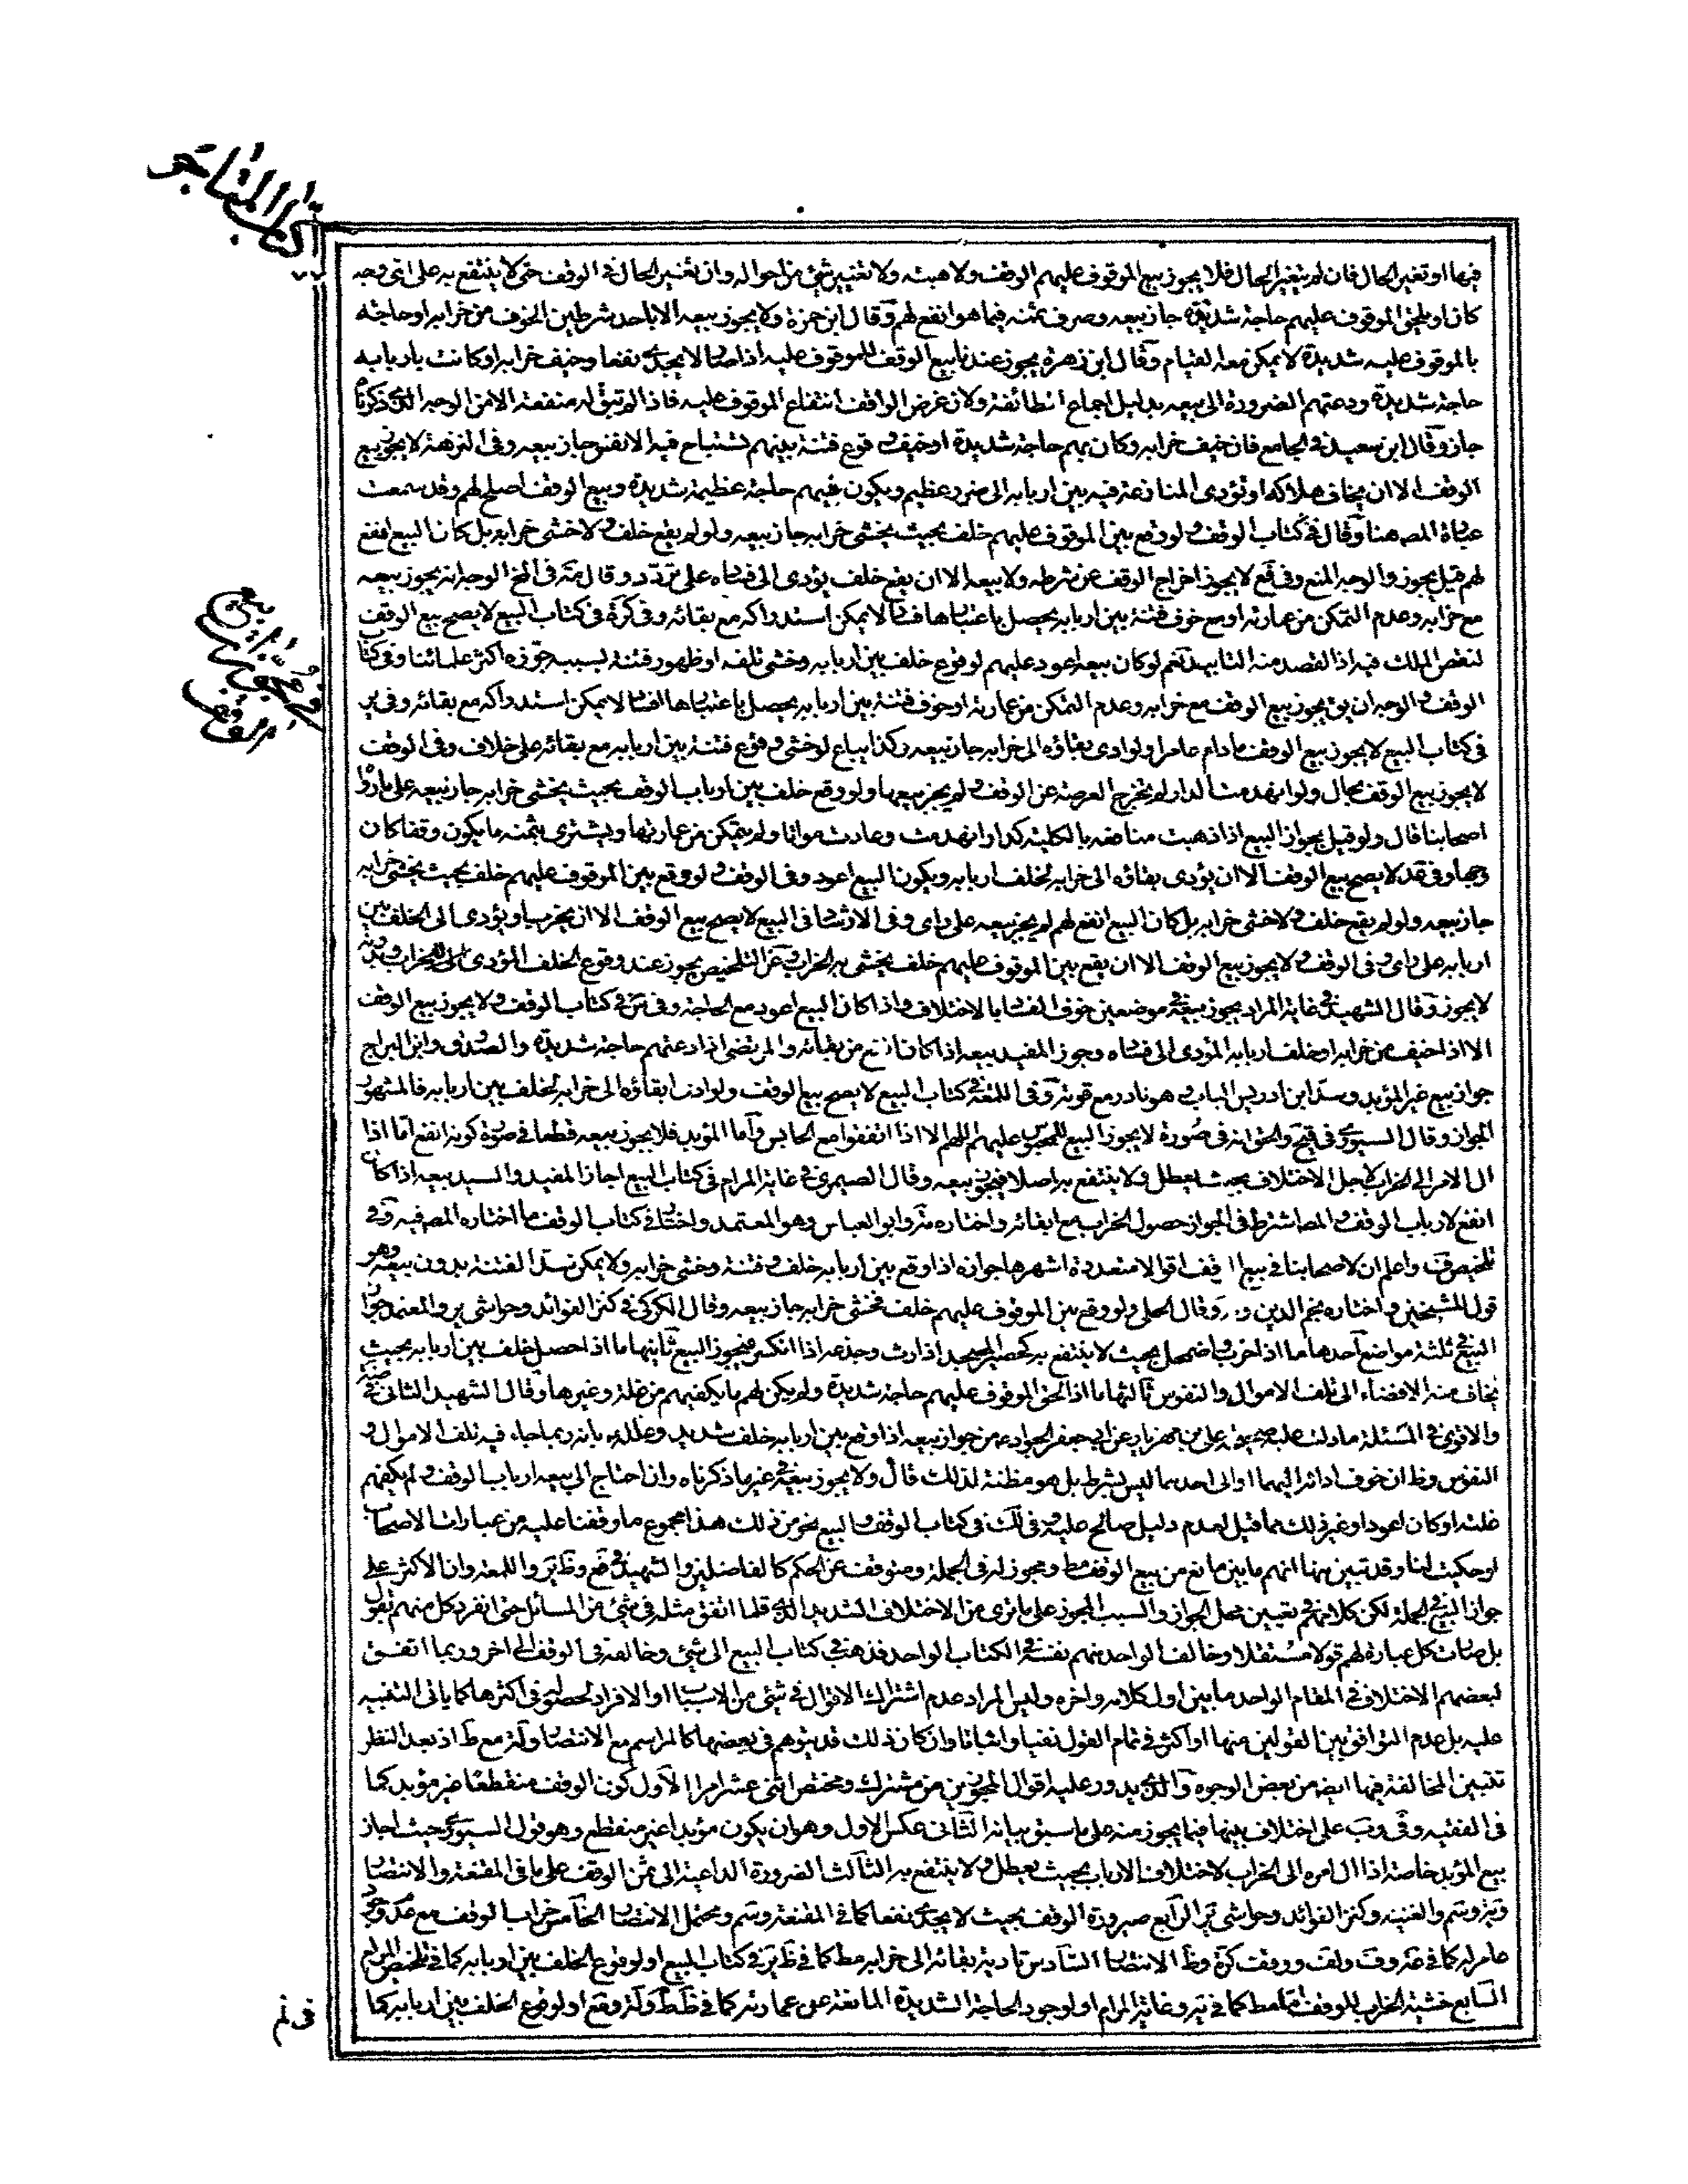 كتاب المتاجر
فيها او تغير الحال فان لم يتغير الحال فلا يجوز بيع الموقوف عليهم الوقف ولا هبته ولا تغيير شئ من احواله وان تغير الحال في الوقف حتى لا ينتفع به على اى وجه
كان او يلحق الموقوف عليهم حاجة شديدة جاز بيعه وصرف ثمنه فيما هو انفع لهم وقال ابن حمزة ولا يجوز بيعه الا باحد شرطين الخوف من خرابه او حاجة
بالموقوف عليه شديدة لا يمكن معه القيام وقال ابن زهرة يجوز عندنا بيع الوقف للموقوف عليه اذا صار لا يجدى نفعا وخيف خرابه او كانت باربابه
حاجة شديدة ودعتهم الضرورة الى بيعه بدليل اجماع الطائفة ولان غرض الواقف انتفاع الموقوف عليه فاذا لم تبق له منفعة الا من الوجه الذى ذكرناه
جاز وقال ابن سعيد في الجامع فان خيف خرابه وكان بهم حاجة شديدة او خيف وقوع فتنة بينهم تستباح فيه الانفس جاز بيعه وفى النزهة لا يجوز بيع
الوقف الا ان يخاف هلاكه او تؤدى المنازعة فيه بين اربابه الى ضرر عظيم ويكون فيهم حاجة عظيمة شديدة وبيع الوقف اصلح لهم وقد سمعت
عبارة المصـ هنا وقال في كتاب الوقف ولو وقع بين الموقوف عليهم خلف بحيث يخشى خرابه جاز بيعه ولو لم يقع خلف ولا خشى خرابه بل كان البيع انفع
لهم قيل يجوز والوجه المنع وفى فع لا يجوز اخراج الوقف عن شرطه ولا بيعه الا ان يقع خلف يؤدى الى فساده على تردد وقال في الوجه انه يجوز بيعه
مع خرابه وعدم التمكن من عمارته او مع خوف فتنة بين اربابه يحصل باعتبارها فساد لا يمكن استدراكه مع بقائه وفى كرة في كتاب البيع لا يصح بيع الوقف
لنقص الملك فيه اذ القصد منه التابيد نعم لو كان بيعه اعود عليهم لوقوع خلف بين اربابه وخشى تلفه او ظهور فتنة بسببه جوزه اكثر علمائنا وفى كتاب
الوقف والوجه ان يق يجوز بيع الوقف مع خرابه وعدم التمكن من عمارته او خوف فتنة بين اربابه يحصل باعتبارها فساد لا يمكن استدراكه مع بقائه وفى ير
فى كتاب البيع لا يجوز بيع الوقف ما دام عامرا ولو ادى بقاؤه الى خرابه جاز بيعه وكذا يباع لو خشى وقوع فتنة بين اربابه مع بقائه على خلاف وفى الوقف
لا يجوز بيع الوقف بحال ولو انهدمت الدار لم تخرج العرصة عن الوقف ولم يجز بيعها ولو وقع خلف بين ارباب الوقف بحيث يخشى خرابه جاز بيعه على ما رواه
اصحابنا قال ولو قيل بجواز البيع اذا ذهبت منافعه بالكلية كدار انهدمت وعادت مواتا ولم يتمكن من عمارتها ويشترى بثمنه ما يكون وقفا كان
وجها وفى عد لا يصح بيع الوقف الا ان يؤدى بقاؤه الى خرابه لخلف اربابه ويكون البيع اعود وفى الوقف ولو وقع بين الموقوف عليهم خلف بحيث يخشى خرابه
جاز بيعه ولو لم يقع خلف ولا خشى خرابه بل كان البيع انفع لهم لم يجز بيعه على راى وفى الارشاد فى البيع لا يصح بيع الوقف الا ان يخرب او يؤدى الى الخلف بين
اربابه على راى وفى الوقف ولا يجوز بيع الوقف الا ان يقع بين الموقوف عليهم خلف يخشى به الخراب وعن التلخيص يجوز عند وقوع الخلف المؤدى الى الخراب وبدونه
لا يجوز وقال الشهيد في غاية المراد يجوز بيعه في موضعين خوف الفساد بالاختلاف واذا كان البيع اعود مع الحاجة وفى س في كتاب الوقف ولا يجوز بيع الوقف
الا اذا خيف من خرابه او خلف اربابه المؤدى الى فساده وجوز المفيد بيعه اذا كان انفع من بقائه والمرتضى اذا دعتهم حاجة شديدة والصدوق وابن البراج
جواز بيع غير المؤبد وسد ابن ادريس الباب وهو نادر مع قوته وفى اللمعة في كتاب البيع لا يصح بيع الوقف ولو ادى بقاؤه الى خرابه لخلف بين اربابه فالمشهور
الجواز وقال السيورى فى قيح والحق انه فى صورة لا يجوز البيع للمحبوس عليهم اللهم الا اذا اتفقوا مع الحابس واما المؤبد فلا يجوز بيعه قطعا في صورة كونه انفع اما اذا
ال الامر الى الخراب لاجل الاختلاف بحيث يعطل ولا ينتفع به اصلا فيجوز بيعه وقال الصيمرى في غاية المرام فى كتاب البيع اجاز المفيد والسيد بيعه اذا كان
انفع لارباب الوقف والمصـ اشترط فى الجواز حصول الخراب مع ابقائه واختاره وابو العباس وهو المعتمد واختار في كتاب الوقف ما اختاره المصـ فيه وفى
تلخيص واعلم ان لاصحابنا في بيع الوقف اقوالا متعددة اشهرها جوازه اذا وقع بين اربابه خلف وفتنة وخشى خرابه ولا يمكن سد الفتنة بدون بيعه وهو
قول الشيخين واختاره نجم الدين وقال الحلى ولو وقع بين الموقوف عليهم خلف فخشى خرابه جاز بيعه وقال الكركى في كنز الفوائد وحواشى ير والمعتمد جواز
البيع في ثلثة مواضع احدها ما اذا خرب واضمحل بحيث لا ينتفع به كحصر المسجد اذا رثت وجذعه اذا انكسر فيجوز البيع ثانيها ما اذا حصل خلف بين اربابه بحيث
يخاف منه الافضاء الى تلف الاموال والنفوس ثالثها ما اذا لحق الموقوف عليهم حاجة شديدة ولم يكن لهم ما يكفيهم من غلة وغيرها وقال الشهيد الثانى في ضه
والاقوى في المسئلة ما دلت عليه صحيحة على بن مهزيار عن ابى جعفر الجواد ع من جواز بيعه اذا وقع بين اربابه خلف شديد وعلله ع بانه ربما جاء فيه تلف الاموال و
النفوس وظ ان خوف ادائه اليهما او الى احدهما ليس بشرط بل هو مظنة لذلك قال ولا يجوز بيعه في غير ما ذكرناه وان احتاج الى بيعه ارباب الوقف ولم يكفهم
غلته او كان اعود او غير ذلك مما قيل لعدم دليل صالح عليه وفى لك في كتاب الوقف والبيع نحو من ذلك هذا مجموع ما وقفنا عليه من عبارات الاصحاب
او حكيت لنا وقد تبين بهذا انهم ما بين مانع من بيع الوقف مط ومجوز له في الجملة ومتوقف عن الحكم كالفاضلين والشهيد في فع وظ ير واللمعة وان الاكثر على
جواز البيع في الجملة لكن كلامهم في تعيين محل الجواز والسبب المجوز على ما ترى من الاختلاف الشديد الذى قلما اتفق مثله في شئ من المسائل حتى انفرد كل منهم بقول
بل صارت كل عبارة لهم قولا مستقلا وخالف الواحد منهم نفسه في الكتاب الواحد فذهب في كتاب البيع الى شئ وخالفه فى الوقف الى اخر وربما اتفق
لبعضهم الاختلاف في المقام الواحد ما بين اول كلامه واخره وليس المراد عدم اشتراك الاقوال في شئ من الاسباب او الافراد لحصوله فى اكثرها كما ياتى التنبيه
عليه بل عدم التوافق بين القولين منها او اكثر في تمام القول نفيا واثباتا وان كان ذلك قد يتوهم فى بعضها كالمراسم مع الانتصار مع ط اذ بعد النظر
تتبين المخالفة فيها ايضـ من بعض الوجوه والذى يدور عليه اقوال المجوزين من مشترك ومختص اثنى عشر امرا الاول كون الوقف منقطعا غير مؤبد كما
فى الفقيه وفى وب على اختلاف بينها فيما يجوز منه على ما سبق بيانه الثانى عكس الاول وهو ان يكون مؤبدا غير منقطع وهو قول السيورى حيث اجاز
بيع المؤبد خاصة اذا ال امره الى الخراب لاختلاف الارباب بحيث يعطل ولا ينتفع به الثالث الضرورة الداعية الى ثمن الوقف على ما فى المقنعة والانتصار
والغنية وكنز الفوائد وحواشى ير الرابع صيرورة الوقف بحيث لا يجدى نفعا كما في المقنعة وسم ومحتمل الانتصار الخامس خراب الوقف مع عدم وجود
عامر له كما في ووقف كرة وظ الانتصار السادس تادية بقائه الى خرابه مط كما في ظ ير في كتاب البيع او لوقوع الخلف بين اربابه كما في تلخيص المرام
السابع خشية الخراب للوقف اما مط كما في وغاية المرام او لوجود الحاجة الشديدة المانعة عن عمارته كما في او لوقوع الخلف بين اربابه كما
فى